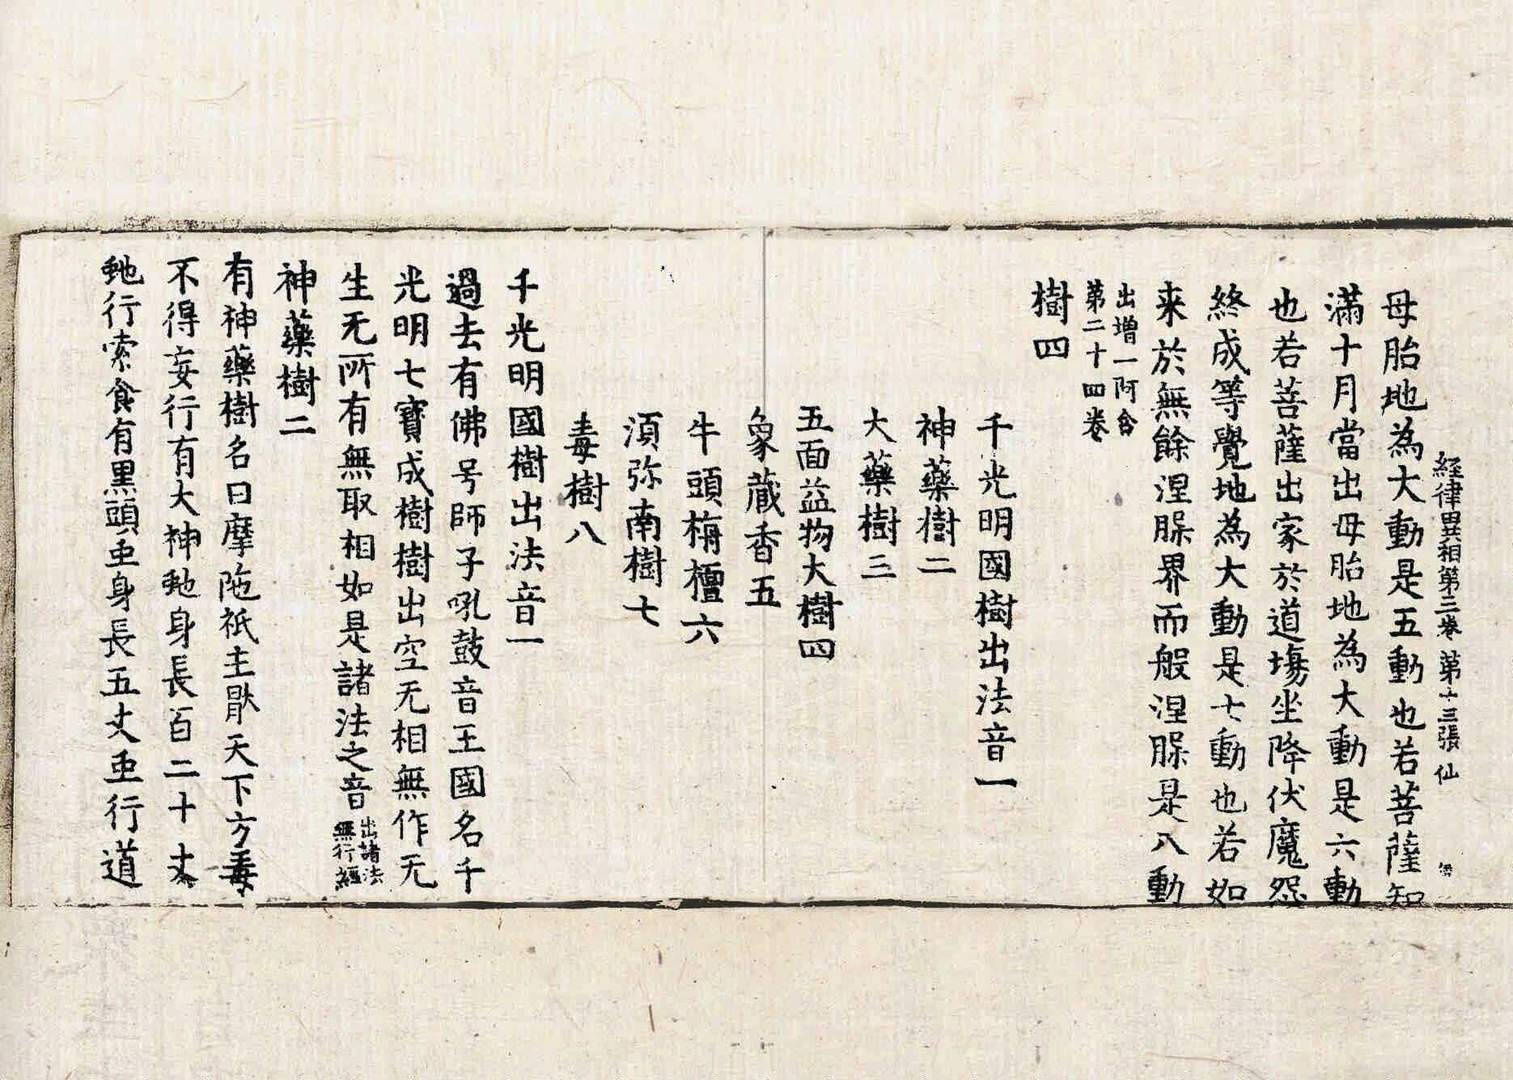 経律異相第三卷 第十三張 仙
母胎地為大動是五動也若菩薩知
滿十月當出母胎地為大動是六動
也若菩薩出家於道場坐降伏魔怨
終成等覺地為大動是七動也若如
来於無餘涅槃界而般涅槃是八動
出增一阿含
第二十四卷
樹四
千光明國樹出法音一
神藥樹二
大藥樹三
五面益物大樹四
象藏香五
牛頭栴檀六
須弥南樹七
毒樹八
千光明國樹出法音一
過去有佛号師子吼鼓音王國名千
光明七寶成樹樹出空无相無作无
生无所有無取相如是諸法之音
出諸法
無行經
神藥樹二
有神藥樹名曰摩陁祇主厭天下方毒
不得妄行有大神虵身長百二十丈
虵行索食有黑頭虫身長五丈虫行道